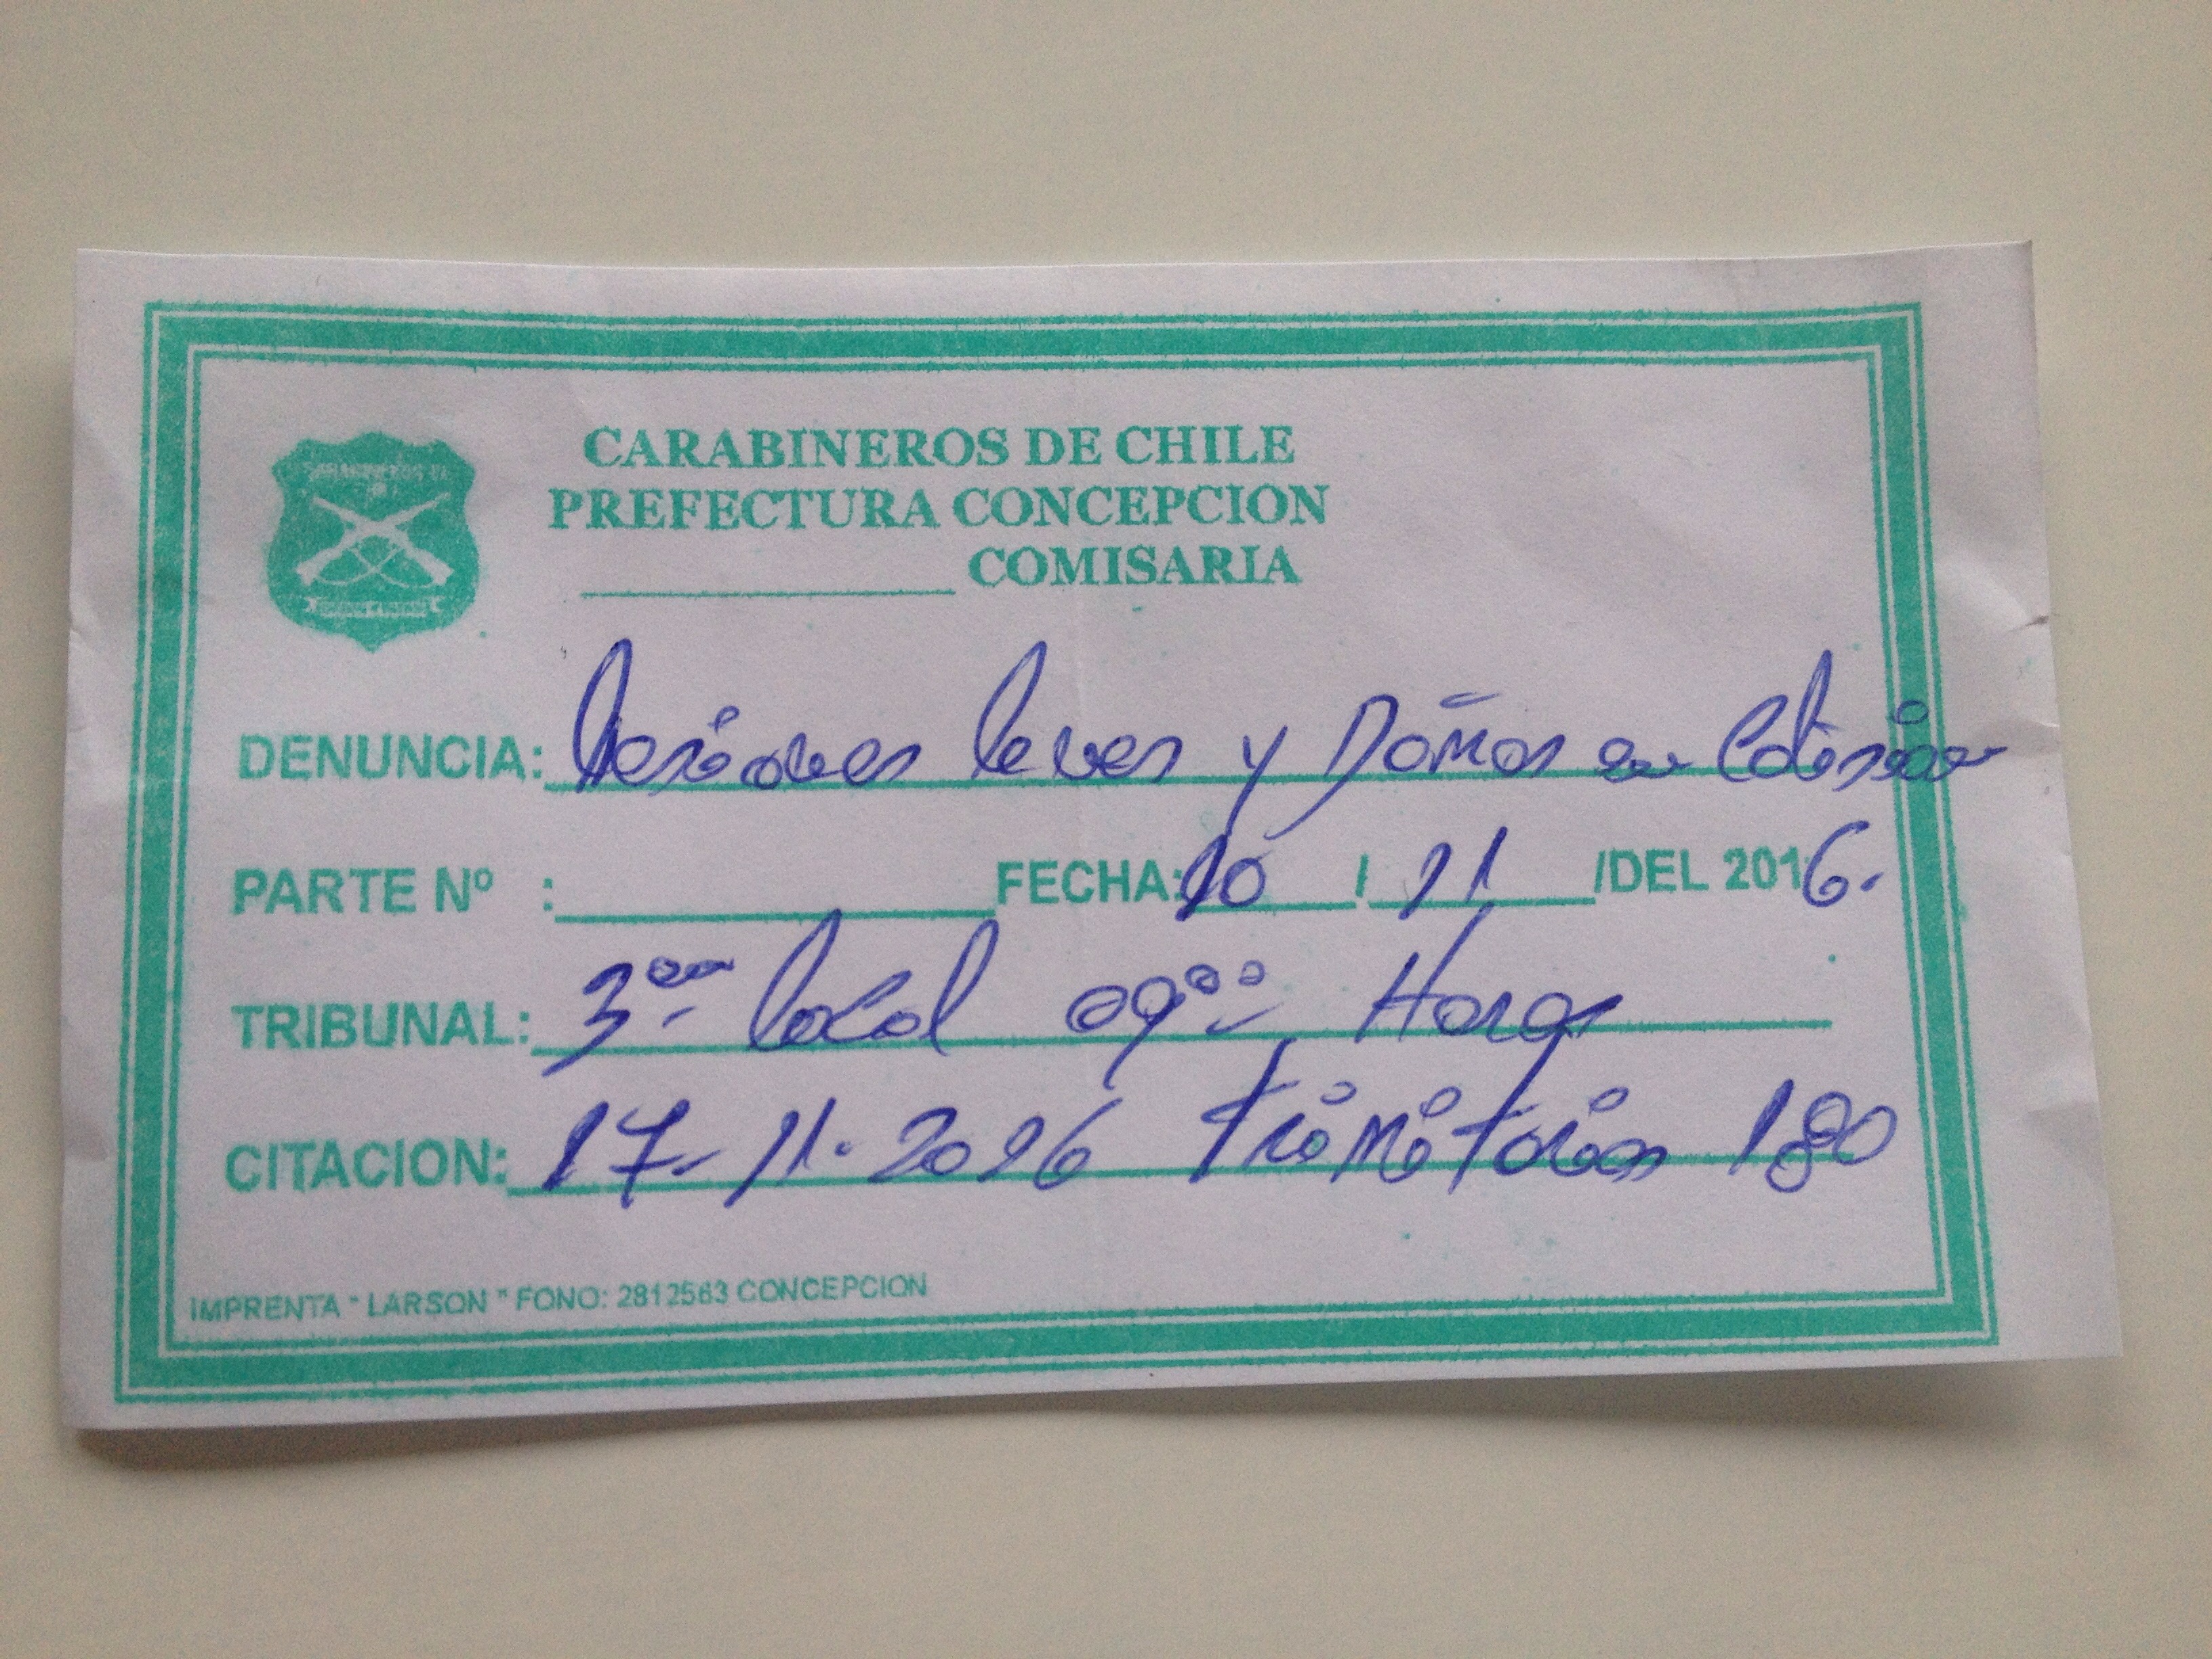 CARABINEROS DE CHILE
PREFECTURA CONCEPCION
COMISARIA
DENUNCIA: Lesiones leves y Daños en Colision
PARTE Nº : FECHA: 10 / 11 /DEL 2016.
TRIBUNAL: 3er local 09:00 Horas
CITACION: 17-11-2016 Trinitarias 180
IMPRENTA "LARSON" FONO: 2812563 CONCEPCION